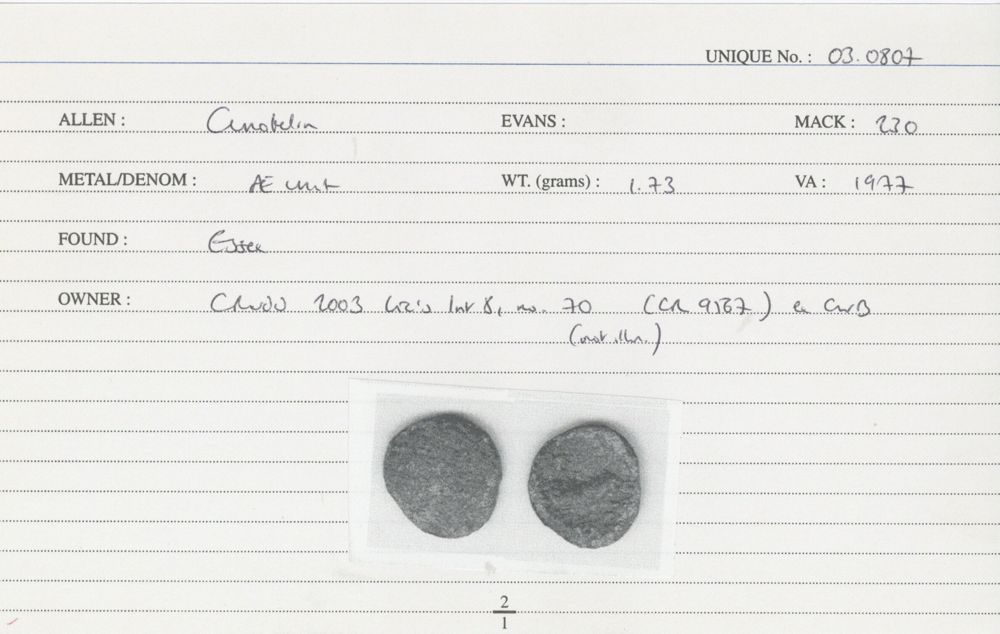 UNIQUE No. : 03.0807
ALLEN : Cunobelin EVANS : MACK : 230
METAL/DENOM : Æ unit WT. (grams) : 1.73 VA : 1977
FOUND : Essex
OWNER : 2003 no. 70 (CR 9567) ex CWB
(not illus.)
2
1